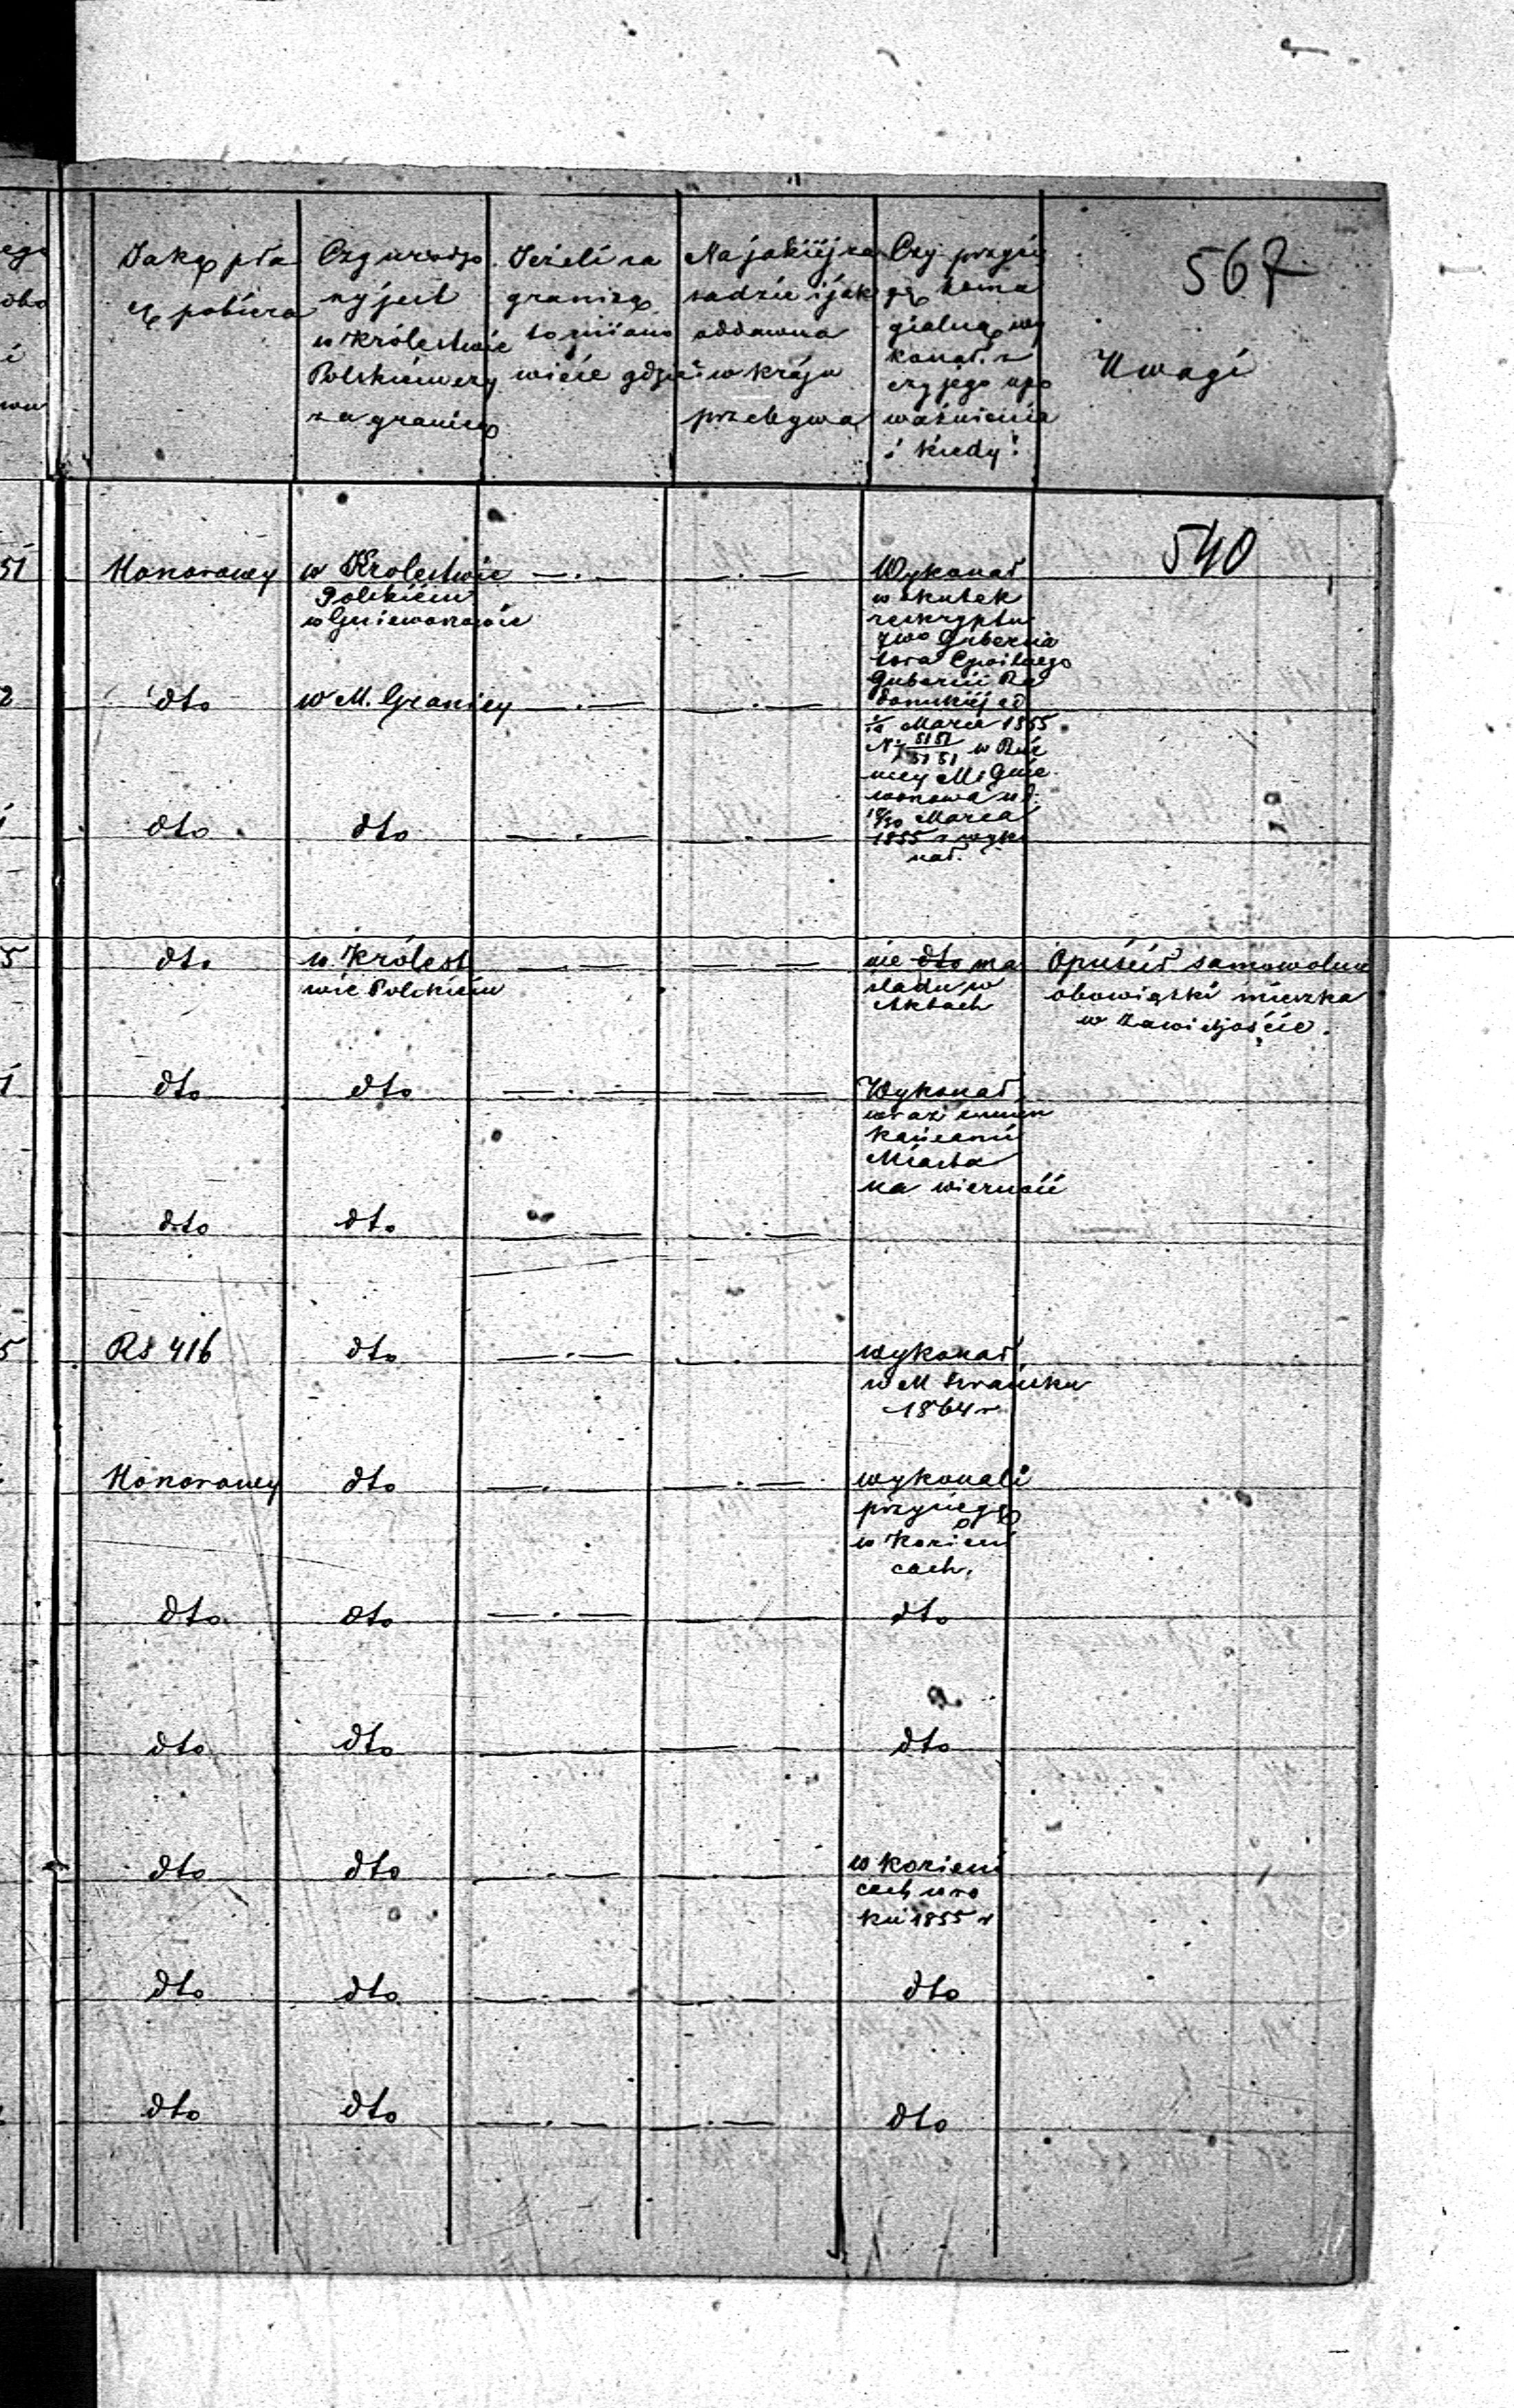 567
Jaką pła
cę pobiera
Czy urodzo
ny jest
w Królestwie
Polskiem czy
za granicą
Jeżeli za
granicą
to miano
wicie gdzie
Na jakiej za
sadzie i jak
oddawna
w kraju
przebywa
Czy przysię
gę homa
gialną wy
konał z
czyjego upo
ważnienia
i kiedy?
Uwagi
540
Honorowy
w Królestwie
Polskiem
w Gniewonowie
—.—
—.—
Wykonał
w skutek
reskryptu
Guberna
tora Cywilnego
Gubernii Ra
domskiej od
Marca 1855
№ 5151
5151
w Boż
nicy M. Gnie
wonowa ud.
18/30 Marca
1855 r wyko
nał.
dto
w M. Granicy
—.—
—.—
dto
dto
—.—
—.—
dto
w Królest
wie Polskiem
—.—
— —
nie dto ma
śladu w
Aktach
Opuścił samowolnie
obowiązki mieszka
w Zawichoście.
dto
dto
—.—
— —
Wykonał
wraz z miesz
kańcami
Miasta
na wierność
dto
dto
—.—
—.—
RS 416
dto
—.—
—.—
wykonał
w M
1864 r
Honorowy
dto
—.—
—.—
wykonali
przysięgę
w Kozieni
cach.
dto
dto
—.—
— —
dto
dto
dto
—.—
— —
dto
dto
dto
—.—
—.—
w Kozieni
cach w ro
ku 1855 r
dto
dto
—.—
—.—
dto
dto
dto
—.—
—.—
dto